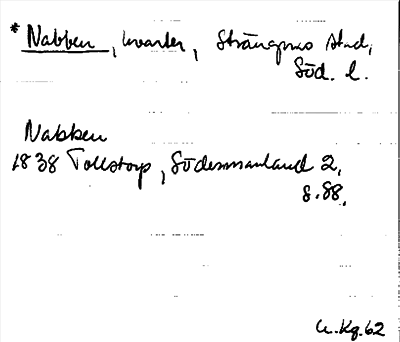 * Nabben, kvarter, Strängnäs stad,
Söd. l.
Nabben
1838 Tollstorp, Södermanland 2,
s. 88.
G. Kg. 62